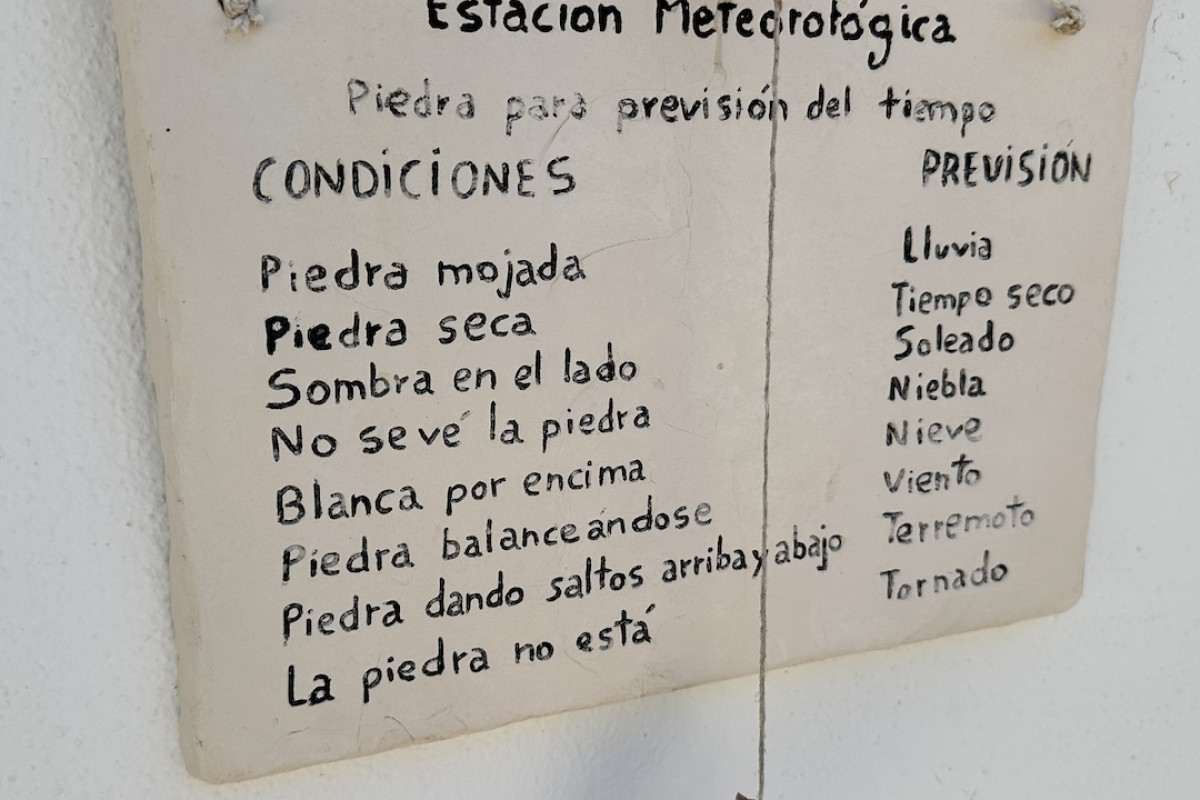 Estacion Meteorológica
Piedra para previsión del tiempo
CONDICIONES PREVISIÓN
Piedra mojada Lluvia
Piedra seca Tiempo seco
Sombra en el lado Soleado
No se vé la piedra Niebla
Blanca por encima Nieve
Piedra balanceándose Viento
Piedra dando saltos arriba y abajo Terremoto
La piedra no está Tornado